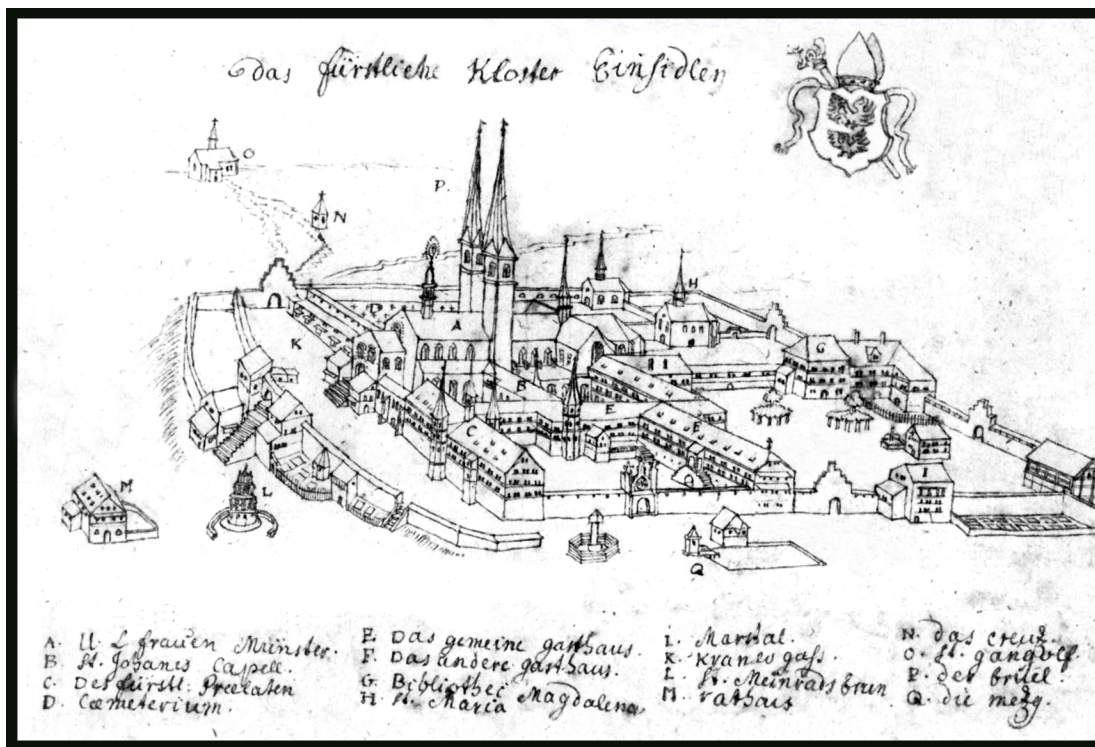 das fürstliche Kloster Einsidlen
O
P.
N
H
D
A
K
G
B
E
C
F
I
M
L
Q
A. U. L frauen Münster.
B St. Johanes Capell.
C. Des fürstl: Preelaten
D. Cœmeterium.
E. Das gemeine gasthaus.
F. Das andere gasthaus.
G. Bibliothec
H St. Maria Magdalena
I. Marstal.
K. Kranes gass.
L. St. Meinrads brun
M. rathaus
N. das creuz.
O. St. gangolf
P. der brüel.
Q. die mezg.